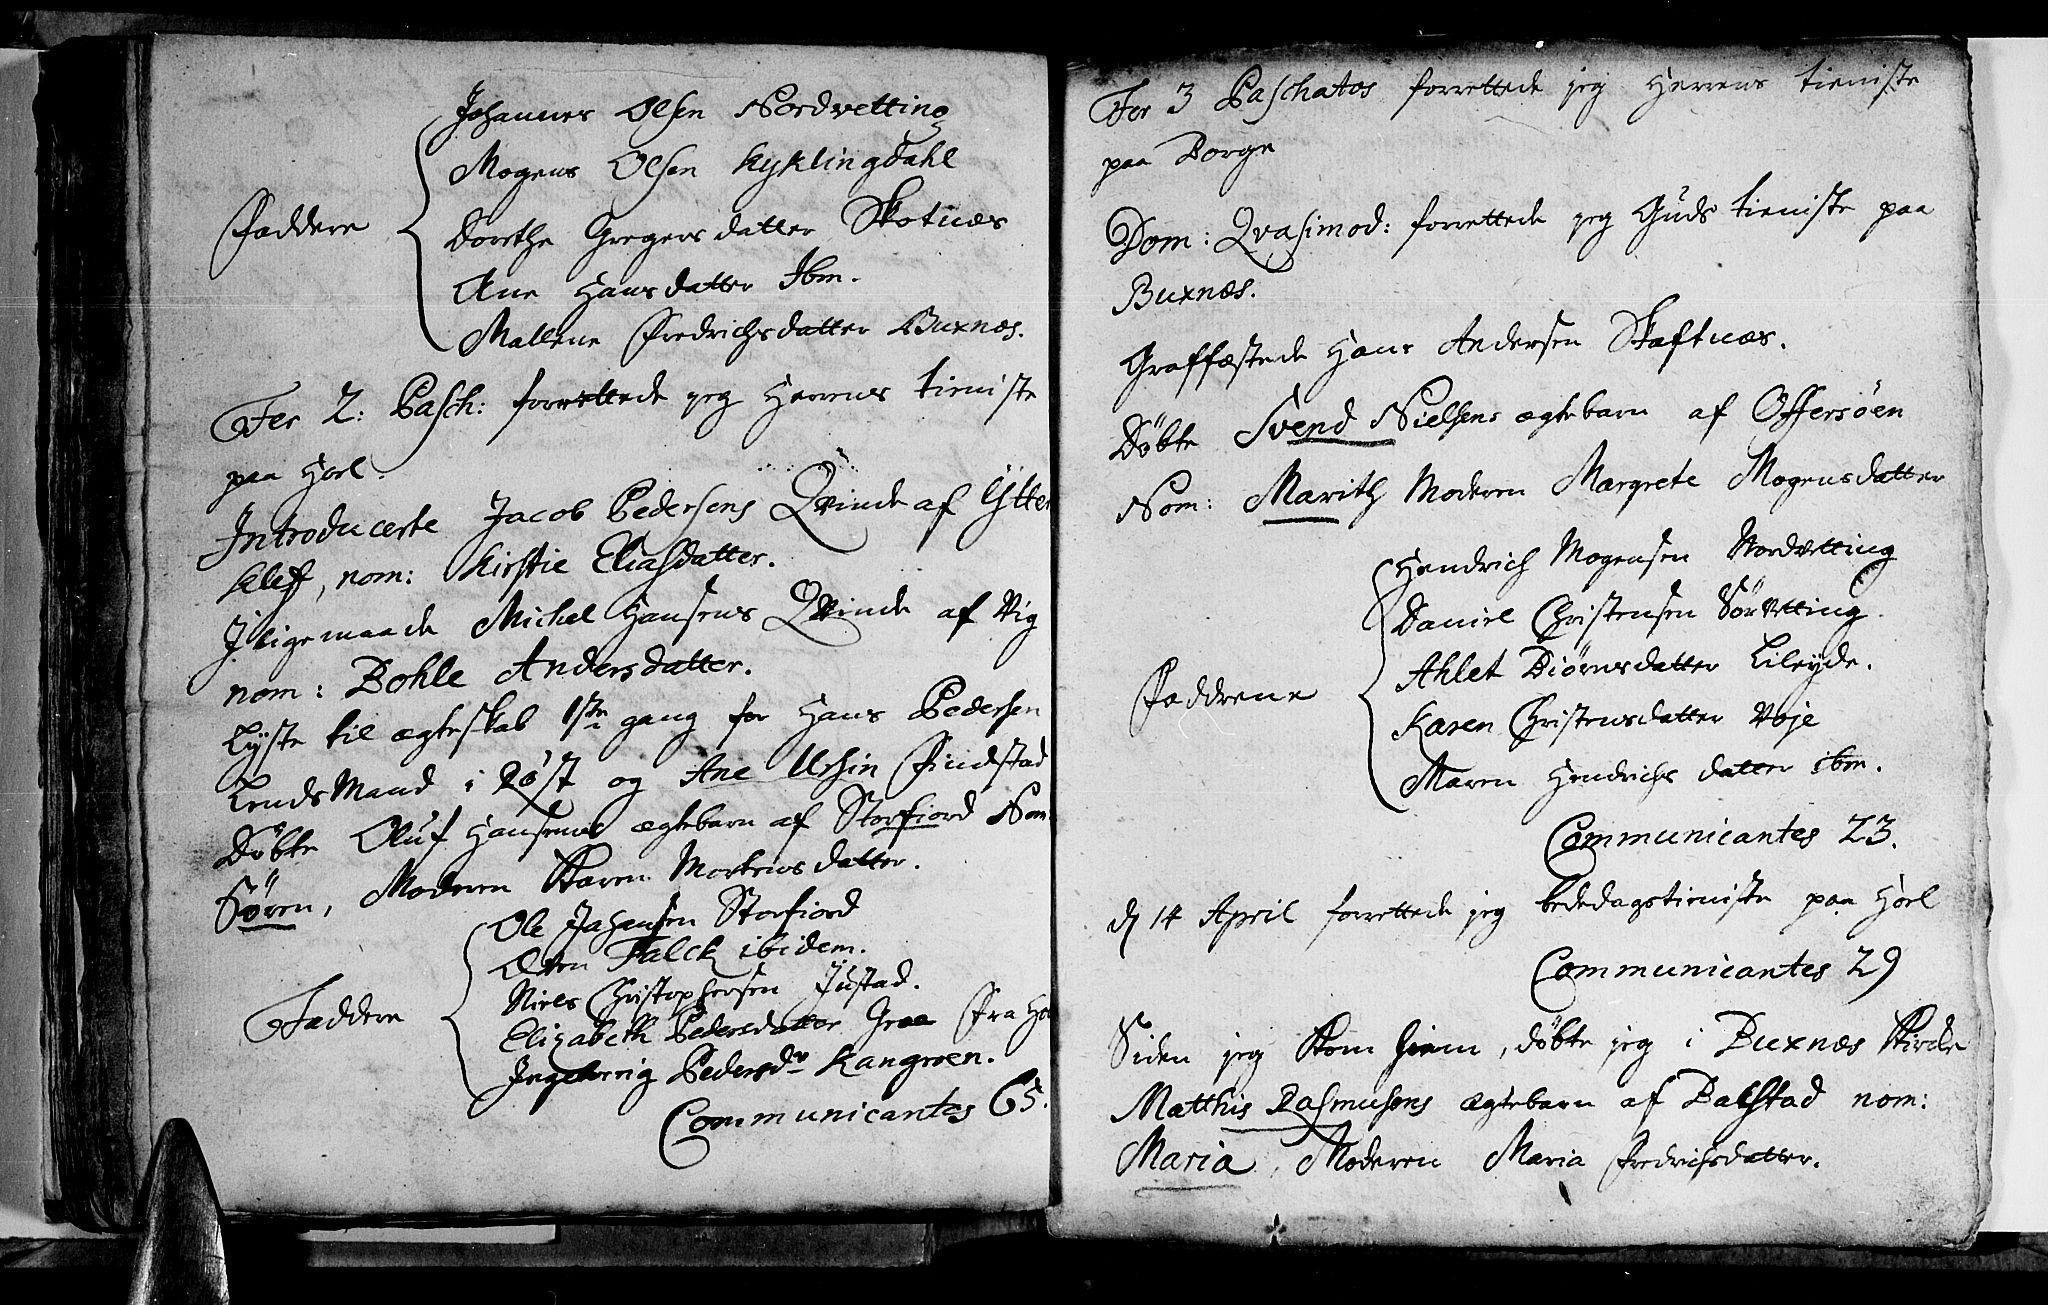 Johannes Olsen Nordvetting
Mogens Olsen Kyklingdahl
Faddere Dorthe Gregersdatter Skotnæs
Ane Hansdatter Ibm.
Mallene Fredrichsdatter Buxnæs.
Fer 2: Pasch: forrettede jeg Herrens tieniste
paa Hoel.
Introducerte Jacob Pedersens Qvinde af Ytter
Kleff, nom: Kirstie Eliasdatter.
Jligemaade Michel Hansens Qvinde af Vig
nom: Bohle Andersdatter.
Lyste til ægteskab 1ste gang for Hans Pedersen
LendsMand i Röst og Ane Ursin Findstad
Döbte Oluf Hansens ægtebarn af Storfiord Nom:
Sören, Moderen Karen Mortensdatter.
Ole Johansen Storfiord
Falck ibidem.
Niels Christophersen Justad.
Faddere Elizabeth Pedersdatter Graa fra
Ingeborrig Pedersdr Kangroen.
Communicantes 65.
Fer 3 Paschatos forrettede jeg Herrens tieniste
paa Borge
Dom: Qvasimod: forrettede jeg Guds tieniste paa
Buxnæs.
Graffæstede Hans Andersen Skaftnæs.
Döbte Svend Nielsens ægtebarn af Offersöen
Nom: Marith Moderen Margrete Mogensdatter
Hendrich Mogensen Nordvetting
Daniel Christensen Sörvetting.
Faddrene Ahlet Biörnsdatter Lileyde.
Karen Christensdatter Voje
Maren Hendrichs datter ibm.
Communicantes 23.
d 14 April forrettede jeg bededagstieniste paa Hoel
Communicantes 29
Siden jeg kom hiem, döbte jeg i Buxnæs Kircke
Matthis Rasmusens ægtebarn af Balstad nom:
Maria, Moderen Maria Fredrichsdatter.